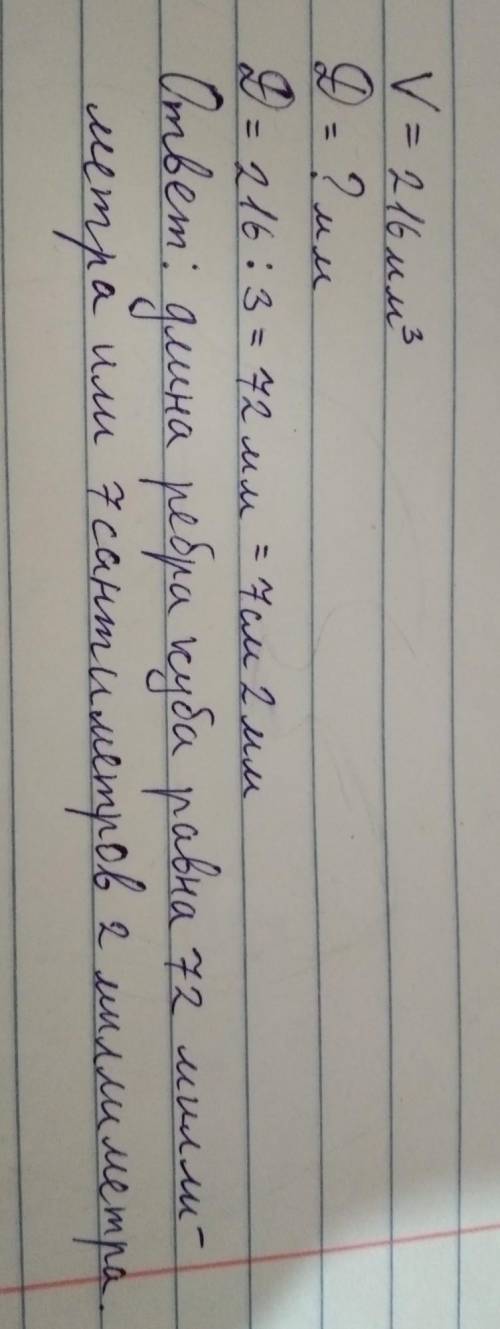 V = 216 мм³
D = ? мм
D = 216 : 3 = 72 мм = 7 см 2 мм
Ответ: длина ребра куба равна 72 милли-
метра или 7 сантиметров 2 миллиметра.